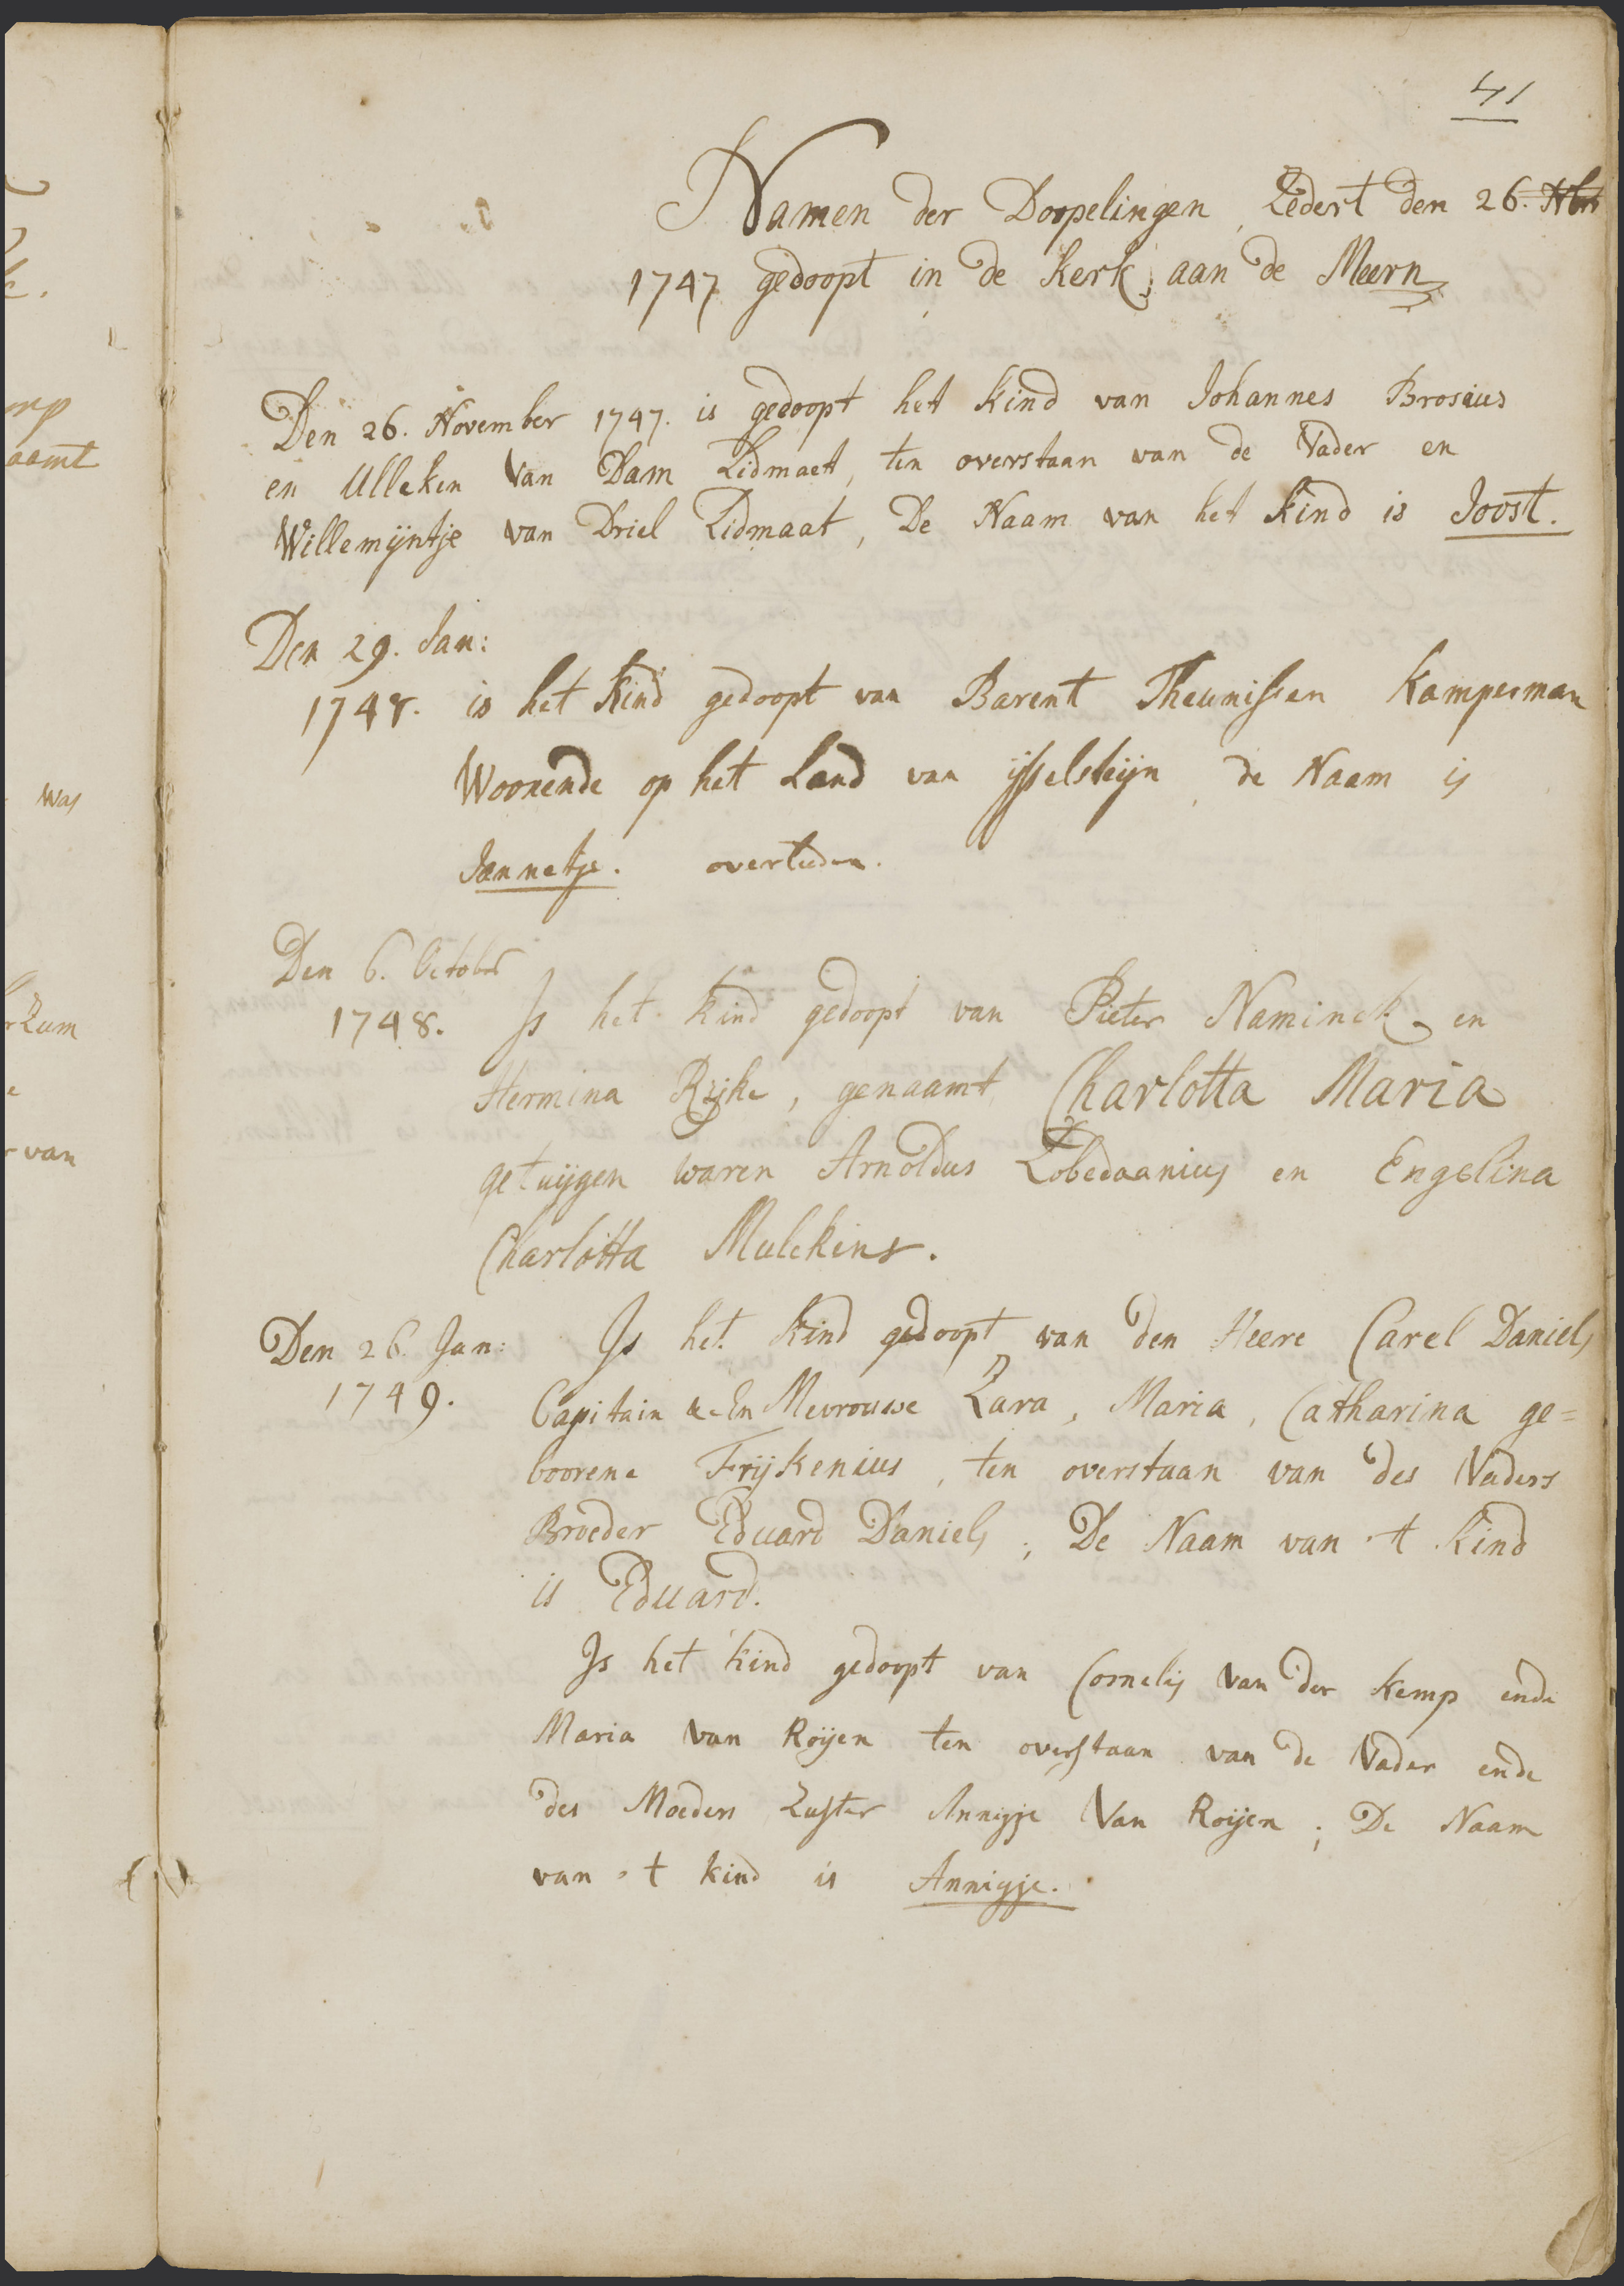 41
Namen der Doopelingen, Zedert den 26.
1747 gedoopt in de Kerk, aan de Meern
Den 26. November 1747. is gedoopt het Kind van Johannes Brosius
en Ulleken Van Dam Lidmaet, ten overstaan van de Vader en
Willemijntje van Driel Lidmaat, De Naam van het Kind is Joost.
Den 29. Jan:
1748. is het Kind gedoopt van Barent Theunissen Kamperman
Woonende op het Land van ijsselsteijn, de Naam is
Jannetje. overleeden.
Den 6. October
1748. Is het kind gedoopt van Pieter Naminck en
Hermina Rijke, genaamt Charlotta Maria
getuijgen waren Arnoldus Lobedaanius en Engelina
Charlotta Mulckens.
Den 26. Jan: Is het Kind gedoopt van den Heere Carel Daniels
1749. Capitain &c En Mevrouwe Zara, Maria, Catharina ge=
boorene Frijkenius, ten overstaan van des Vaders
Broeder Eduard Daniels; De Naam van 't Kind
is Eduard.
Is het kind gedoopt van Cornelis Van der Kemp ende
Maria Van Roijen ten overstaan van de Vader ende
des Moeders Zuster Annigje Van Roijen; De Naam
van 't kind is Annigje.
mp
aamt
was
van